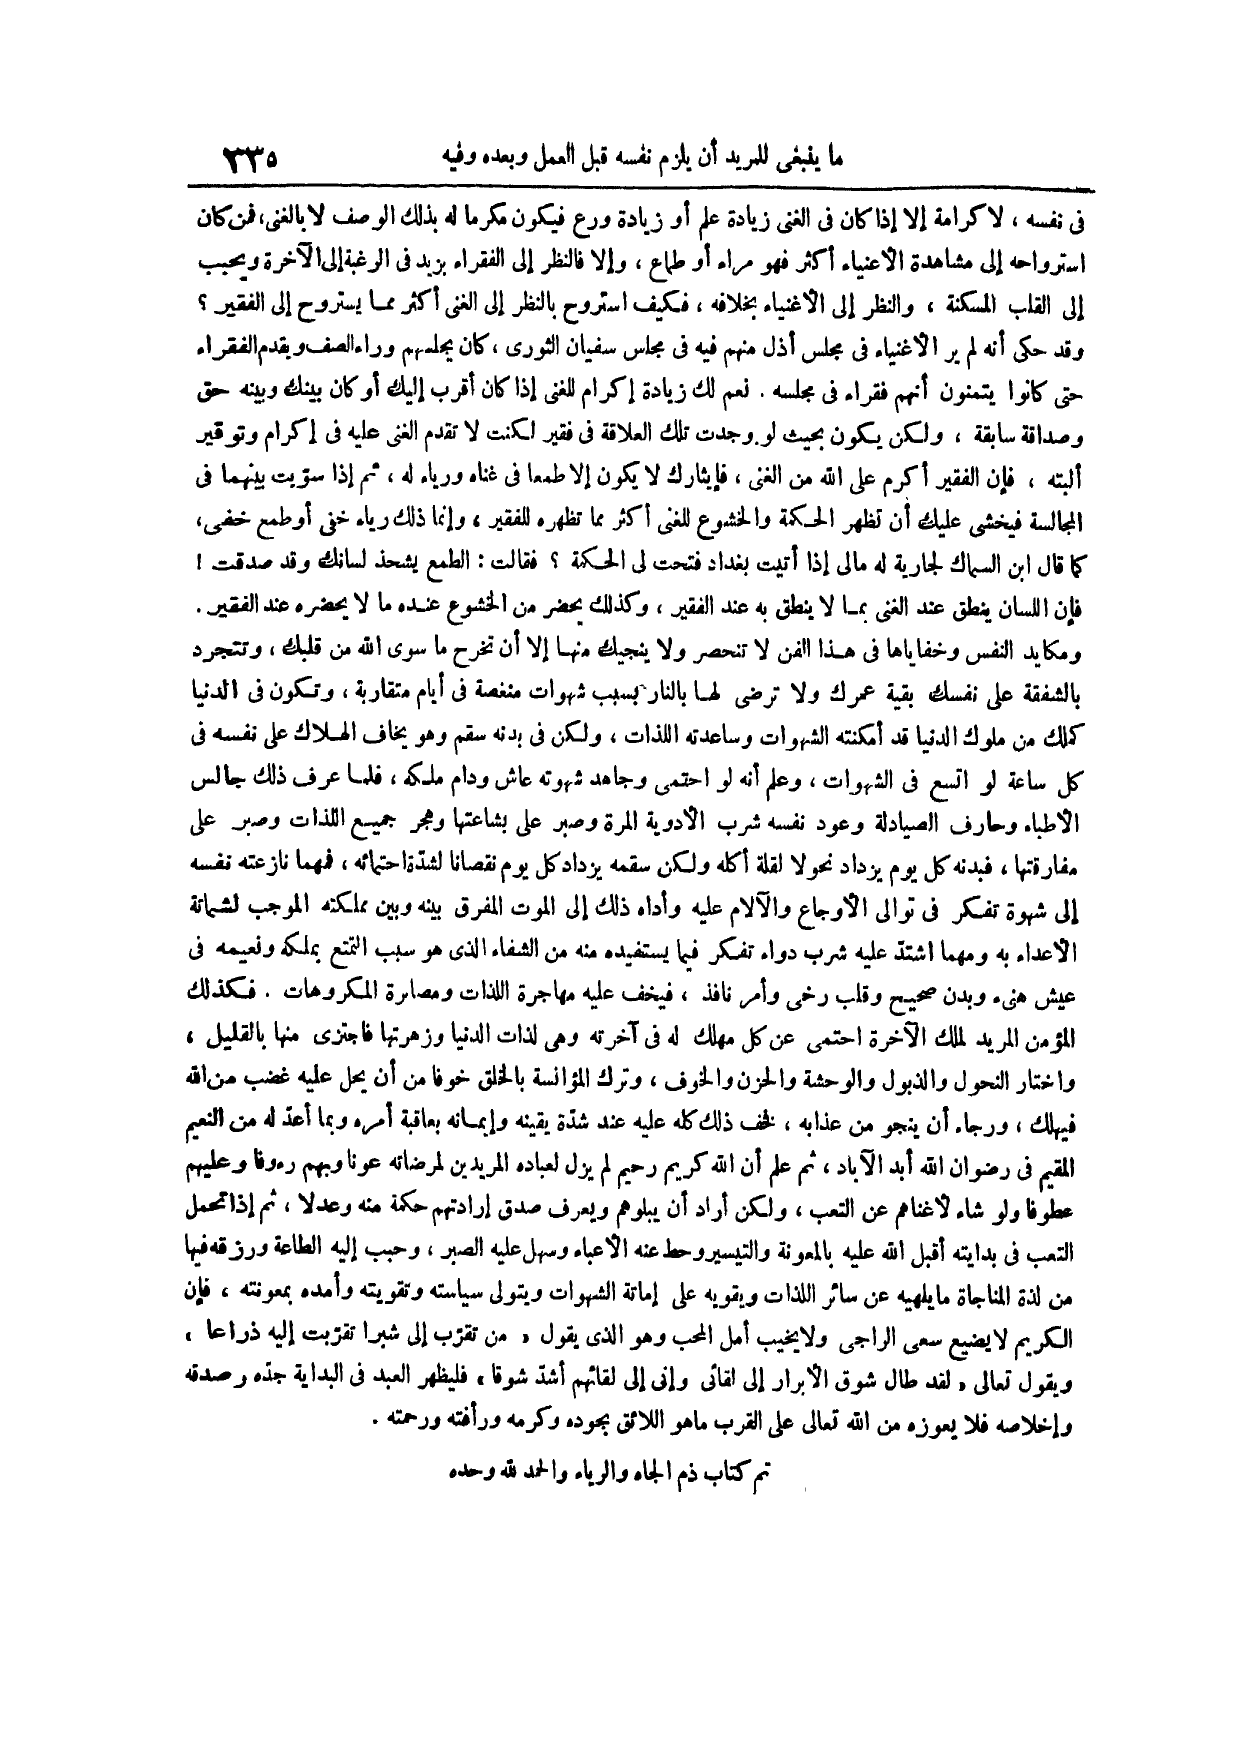 ما ينبغى للمريد أن يلزم نفسه قبل العمل وبعده وفيه ٣٣٥
فى نفسه ، لا كرامة إلا إذا كان فى الغنى زيادة علم أو زيادة ورع فيكون مكرما له بذلك الوصف لا بالغنى ، فمن كان
استرواحه إلى مشاهدة الأغنياء أكثر فهو مراء أو طماع ، وإلا فالنظر إلى الفقراء يزيد فى الرغبة إلى الآخرة ويحبب
إلى القلب المسكنة ، والنظر إلى الأغنياء بخلافه ، فكيف استروح بالنظر إلى الغنى أكثر مما يستروح إلى الفقير ؟
وقد حكى أنه لم ير الأغنياء فى مجلس أذل منهم فيه فى مجلس سفيان الثورى ، كان يجلسهم وراء الصف ويقدم الفقراء
حتى كانوا يتمنون أنهم فقراء فى مجلسه . نعم لك زيادة إكرام للغنى إذا كان أقرب إليك أو كان بينك وبينه حق
وصداقة سابقة ، ولكن يكون بحيث لو وجدت تلك العلاقة فى فقير لكنت لا تقدم الغنى عليه فى إكرام وتوقير
ألبته ، فإن الفقير أكرم على الله من الغنى ، فإيثارك لا يكون إلا طمعا فى غناه ورياء له ، ثم إذا سوّيت بينهما فى
المجالسة فيخشى عليك أن تظهر الحكمة والخشوع للغنى أكثر مما تظهره للفقير ، وإنما ذلك رياء خفى أو طمع خفى ،
كما قال ابن السماك لجارية له مالى إذا أتيت بغداد فتحت لى الحكمة ؟ فقالت : الطمع يشحذ لسانك وقد صدقت !
فإن اللسان ينطق عند الغنى بما لا ينطق به عند الفقير ، وكذلك يحضر من الخشوع عنده ما لا يحضره عند الفقير .
ومكايد النفس وخفاياها فى هذا الفن لا تنحصر ولا ينجيك منها إلا أن تخرج ما سوى الله من قلبك ، وتتجرد
بالشفقة على نفسك بقية عمرك ولا ترضى لها بالنار بسبب شهوات منغصة فى أيام متقاربة ، وتكون فى الدنيا
كملك من ملوك الدنيا قد أمكنته الشهوات وساعدته اللذات ، ولكن فى بدنه سقم وهو يخاف الهلاك على نفسه فى
كل ساعة لو اتسع فى الشهوات ، وعلم أنه لو احتمى وجاهد شهوته عاش ودام ملكه ، فلما عرف ذلك جالس
الأطباء وحارف الصيادلة وعود نفسه شرب الأدوية المرة وصبر على بشاعتها وهجر جميع اللذات وصبر على
مفارقتها ، فبدنه كل يوم يزداد نحولا لقلة أكله ولكن سقمه يزداد كل يوم نقصانا لشدّة احتمائه ، فمهما نازعته نفسه
إلى شهوة تفكر فى توالى الأوجاع والآلام عليه وأداه ذلك إلى الموت المفرق بينه وبين مملكته الموجب لشماتة
الأعداء به ومهما اشتدّ عليه شرب دواء تفكر فيما يستفيده منه من الشفاء الذى هو سبب التمتع بملكه ونعيمه فى
عيش هنىء وبدن صحيح وقلب رخى وأمر نافذ ، فيخف عليه مهاجرة اللذات ومصابرة المكروهات . فكذلك
المؤمن المريد لملك الآخرة احتمى عن كل مهلك له فى آخرته وهى لذات الدنيا وزهرتها فاجتزى منها بالقليل ،
واختار النحول والذبول والوحشة والحزن والخوف ، وترك المؤانسة بالخلق خوفا من أن يحل عليه غضب من الله
فيهلك ، ورجاء أن ينجو من عذابه ، فخف ذلك كله عليه عند شدّة يقينه وإيمانه بعاقبة أمره وبما أعدّ له من النعيم
المقيم فى رضوان الله أبد الآباد ، ثم علم أن الله كريم رحيم لم يزل لعباده المريدين لمرضاته عونا وبهم رءوفا وعليهم
عطوفا ولو شاء لأغناهم عن التعب ، ولكن أراد أن يبلوهم ويعرف صدق إرادتهم حكمة منه وعدلا ، ثم إذا تحمل
التعب فى بدايته أقبل الله عليه بالمعونة والتيسير وحط عنه الأعباء وسهل عليه الصبر ، وحبب إليه الطاعة ورزقه فيها
من لذة المناجاة ما يلهيه عن سائر اللذات ويقويه على إماتة الشهوات ويتولى سياسته وتقويته وأمده بمعونته ، فإن
الكريم لا يضيع سعى الراجى ولا يخيب أمل المحب وهو الذى يقول « من تقرّب إلى شبرا تقرّبت إليه ذراعا »
ويقول تعالى « لقد طال شوق الأبرار إلى لقائى وإنى إلى لقائهم أشدّ شوقا » فليظهر العبد فى البداية جدّه وصدقه
وإخلاصه فلا يعوزه من الله تعالى على القرب ماهو اللائق بجوده وكرمه ورأفته ورحمته .
تم كتاب ذم الجاه والرياء والحمد لله وحده